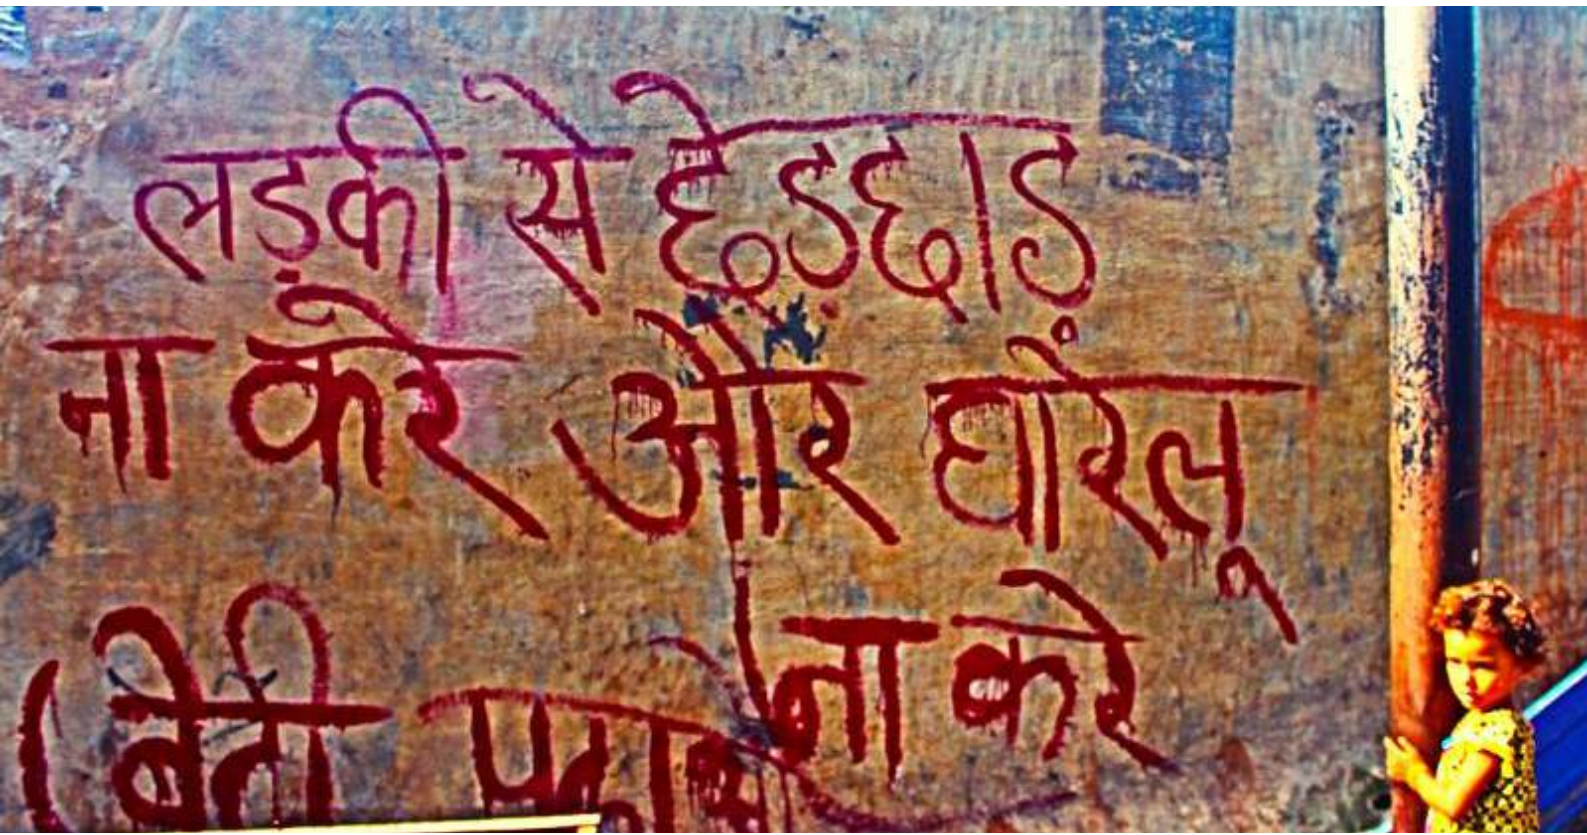 लड़की से छेड़छाड़
ना करे और घारेंलू
ना करे
(बेटी पढ़ाओ